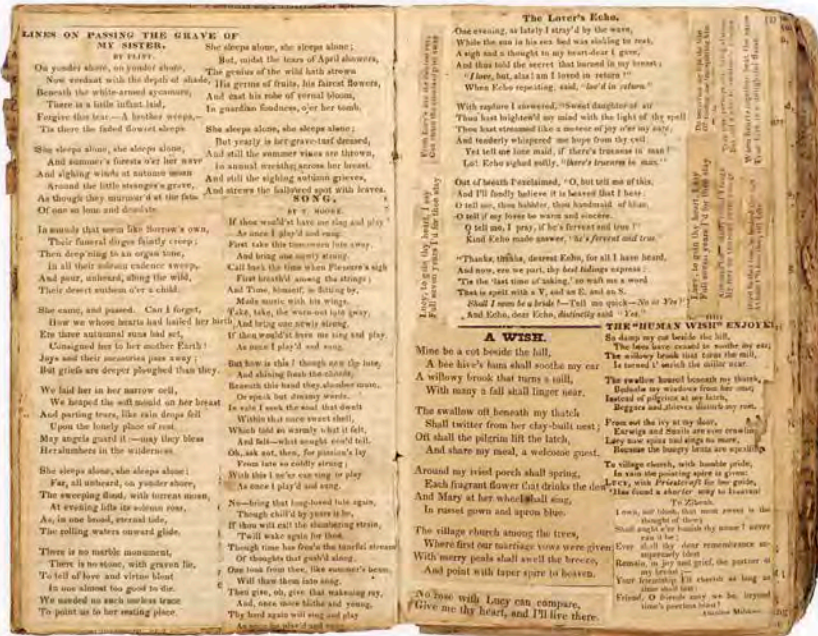 LINES ON PASSING THE GRAVE OF
MY SISTER.
BY FLINT.
On yonder shore, on yonder shore,
Now verdant with the depth of shade,
Beneath the white-armed sycamore,
There is a little infant laid,
Forgive this tear.—A brother weeps,—
'Tis there the faded floweret sleeps
She sleeps alone, she sleeps alone,
And summer's forests o'er her wave
And sighing winds at autumn moan
Around the little stranger's grave,
As though they murmur'd at the fate
Of one so lone and desolate
In sounds that seem like Sorrow's own,
Their funeral dirges faintly creep;
Then deep'ning to an organ tone,
In all their solemn cadence sweep,
And pour, unheard, along the wild,
Their desert anthem o'er a child.
She came, and passed. Can I forget,
How we whose hearts had hailed her birth
Ere three autumnal suns had set,
Consigned her to her mother Earth!
Joys and their memories pass away;
But griefs are deeper ploughed than they.
We laid her in her narrow cell,
We heaped the soft mould on her breast
And parting tears, like rain drops fell
Upon the lonely place of rest.
May angels guard it:—may they bless
Her slumbers in the wilderness
She sleeps alone, she sleeps alone;
For, all unheard, on yonder shore,
The sweeping flood, with torrent moan,
At evening lifts its solemn roar,
As, in one broad, eternal tide,
The rolling waters onward glide.
There is no marble monument,
There is no stone, with graven lie,
To tell of love and virtue blent
In one almost too good to die.
We needed no such useless trace
To point us to her resting place.
She sleeps alone, she sleeps alone;
But, midst the tears of April showers,
The genius of the wild hath strown
His germs of fruits, his fairest flowers,
And cast his robe of vernal bloom,
In guardian fondness, o'er her tomb.
She sleeps alone, she sleeps alone;
But yearly is her grave-turf dressed,
And still the summer vines are thrown,
In annual wreaths, across her breast.
And still the sighing autumn grieves,
And strews the hallowed spot with leaves.
SONG.
BY T. MOORE.
If thou would'st have me sing and play
As once I play'd and sung,
First take this time-worn lute away
And bring one newly strung.
Call back the time when Pleasure's sigh
First breath'd among the strings;
And Time, himself, in flitting by,
Made music with his wings.
Take, take, the worn-out lute away,
And bring one newly strung.
If thou would'st have me sing and play
As once I play'd and sung.
But how is this? though new thy lute,
And shining fresh the chords,
Beneath this hand they slumber mute,
Or speak but dreamy words.
In vain I seek the soul that dwelt
Within that once sweet shell,
Which told so warmly what it felt,
And felt—what nought could tell.
Oh, ask not, then, for passion's lay
From lute so coldly strung;
With this I ne'er can sing or play
As once I play'd and sung.
No—bring that long-loved lute again,
Though chill'd by years it be,
If thou wilt call the slumbering strain,
'Twill wake again for thee.
Though time has froz'n the tuneful stream
Of thoughts that gush'd along,
One look from thee, like summer's beam,
Will thaw them into song.
Then give, oh, give that wakening ray,
And, once more blithe and young,
Thy bard again will sing and play
As once he play'd and sung.
The Lover's Echo.
One evening, as lately I stray'd by the wave,
While the sun in his sea bed was sinking to rest,
A sigh and a thought to my heart-dear I gave,
And thus told the secret that burned in my breast;
"I love, but, alas! am I loved in return?"
When Echo repeating, said, "lov'd in return."
With rapture I answered, "Sweet daughter of air
Thou hast brighten'd my mind with the light of thy spell
Thou hast streamed like a meteor of joy o'er my care,
And tenderly whispered me hope from thy cell
Yet tell me lone maid, if there's trueness in man?
Lo! Echo sighed softly, "there's trueness in man."
Out of breath I exclaimed, "O, but tell me of this,
And I'll fondly believe it is heaven that I hear;
O tell me, thou babbler, thou handmaid of bliss,
O tell if my lover be warm and sincere.
O tell me, I pray, if he's fervent and true!"
Kind Echo made answer, "he's fervent and true.
"Thanks, thanks, dearest Echo, for all I have heard,
And now, ere we part, thy best tidings express:
'Tis the "last time of asking," so waft me a word
That is spelt with a Y, and an E, and an S.
Shall I soon be a bride?—Tell me quick—No or Yes?"
And Echo, dear Echo, distinctly said "Yes."
Lucy, to gain thy heart, I say
Full seven years I'd for thee stay
Lucy, to gain thy heart, I say
Full seven years I'd for thee stay
A WISH.
Mine be a cot beside the hill,
A bee hive's hum shall soothe my ear
A willowy brook that turns a mill,
With many a fall shall linger near.
The swallow oft beneath my thatch
Shall twitter from her clay-built nest;
Oft shall the pilgrim lift the latch,
And share my meal, a welcome guest.
Around my ivied porch shall spring,
Each fragrant flower that drinks the dew
And Mary at her wheel shall sing,
In russet gown and apron blue.
The village church among the trees,
Where first our marriage vows were given
With merry peals shall swell the breeze,
And point with taper spire to heaven.
No rose with Lucy can compare,
Give me thy heart, and I'll live there.
THE "HUMAN WISH" ENJOY
So damp my cot beside the hill,
The bees have ceased to soothe my ear;
The willowy brook that turns the mill,
Is turned t' enrich the miller near.
The swallow housed beneath my thatch,
Bedaubs my windows from her nest;
Instead of pilgrims at my latch,
Beggars and thieves disturb my rest.
From out the ivy at my door,
Earwigs and Snails are ever crawling
Lucy now spins and sings no more,
Because the hungry brats are squalling
To village church, with humble pride,
In vain the pointing spire is given;
LUCY, with Priestcraft for her guide,
Has found a shorter way to heaven!
To
I own, nor blush, that most sweet is the
thought of thee;
Shall aught e'er banish thy name? never
can it be;
Ever shall thy dear remembrance
supremely blest
Remain, in joy and grief, the partner of
my breast;—
Your friendship I'll cherish as long as
time shall last:
Friend, O friends may we be, beyond
time's